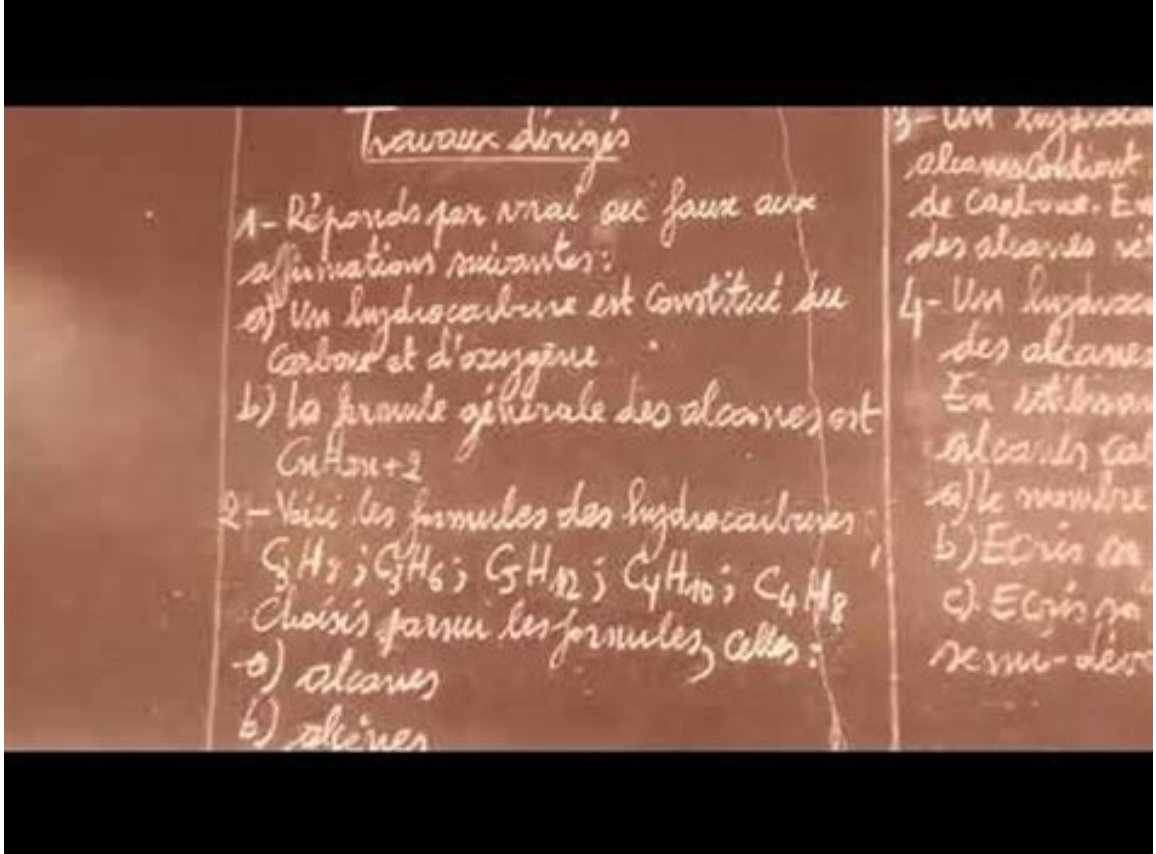 Travaux dirigés
1- Réponds par vrai ou faux aux
affirmations suivantes:
a) Un hydrocarbure est constitué du
carbone et d'oxygène
b) la formule générale des alcanes est
CnH2n+2
2- Voici les formules des hydrocarbures:
; C3H6; C5H12; C4H10; C4H8
Choisis parmi les formules, celles:
a) alcanes
b) alcènes
3- Un
alcanes contient
de carbone.
des alcanes
4- Un
des alcanes
En
alcanes
a) le nombre
b) Ecris
c) Ecris sa
semi-